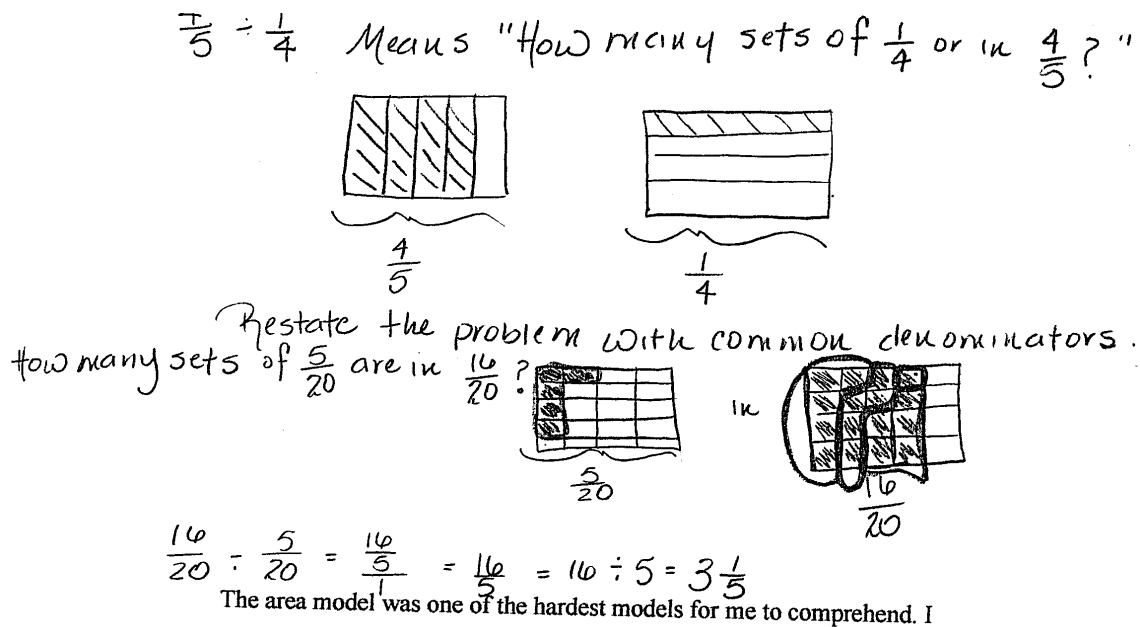 /5 ÷ 1/4 Means "How many sets of 1/4 or in 4/5?"
4/5 1/4
Restate the problem with common denominators.
How many sets of 5/20 are in 16/20? in
5/20 16/20
16/20 ÷ 5/20 = 16/5/1 = 16/5 = 16 ÷ 5 = 3 1/5
The area model was one of the hardest models for me to comprehend. I